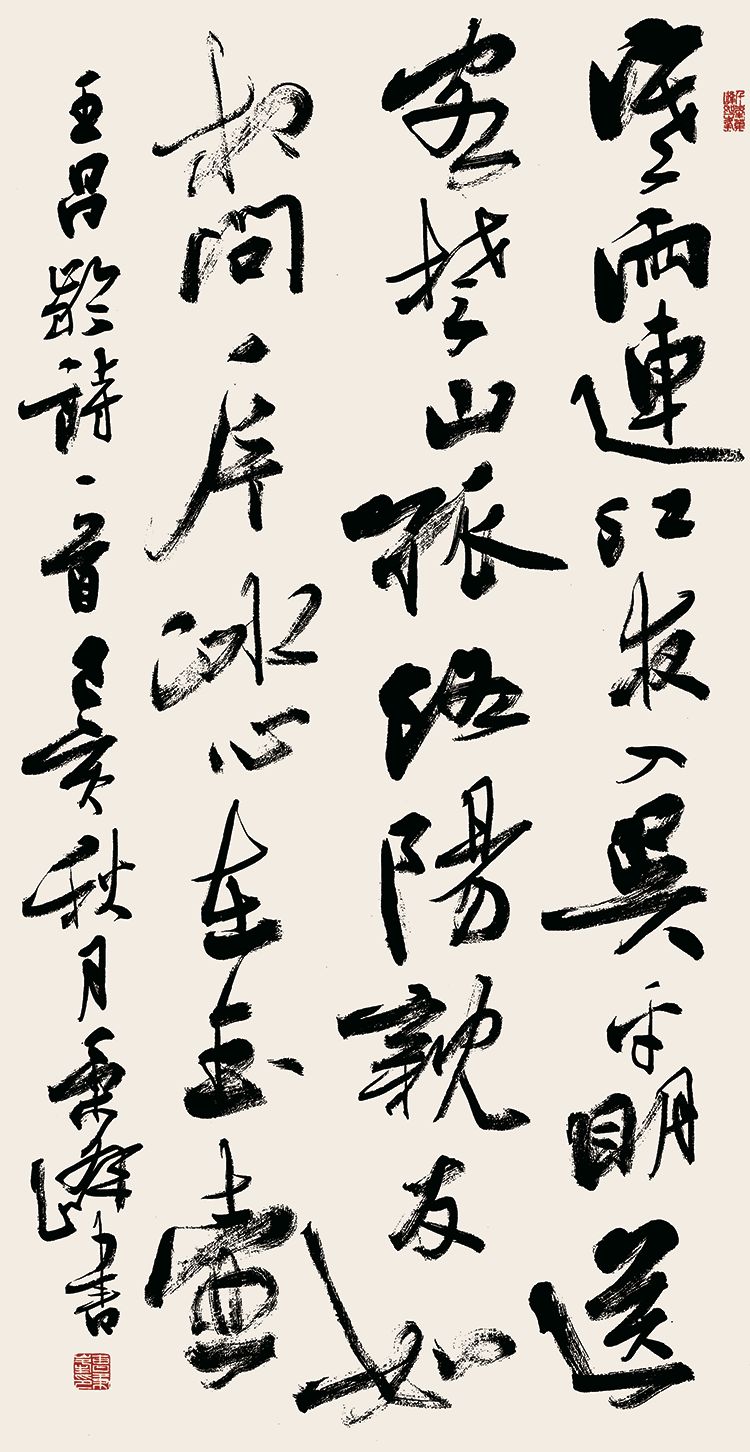 寒雨連江夜入吳平明送
客楚山孤洛陽親友如
相問一片冰心在玉壺
王昌齡詩一首己亥秋月秉峰書